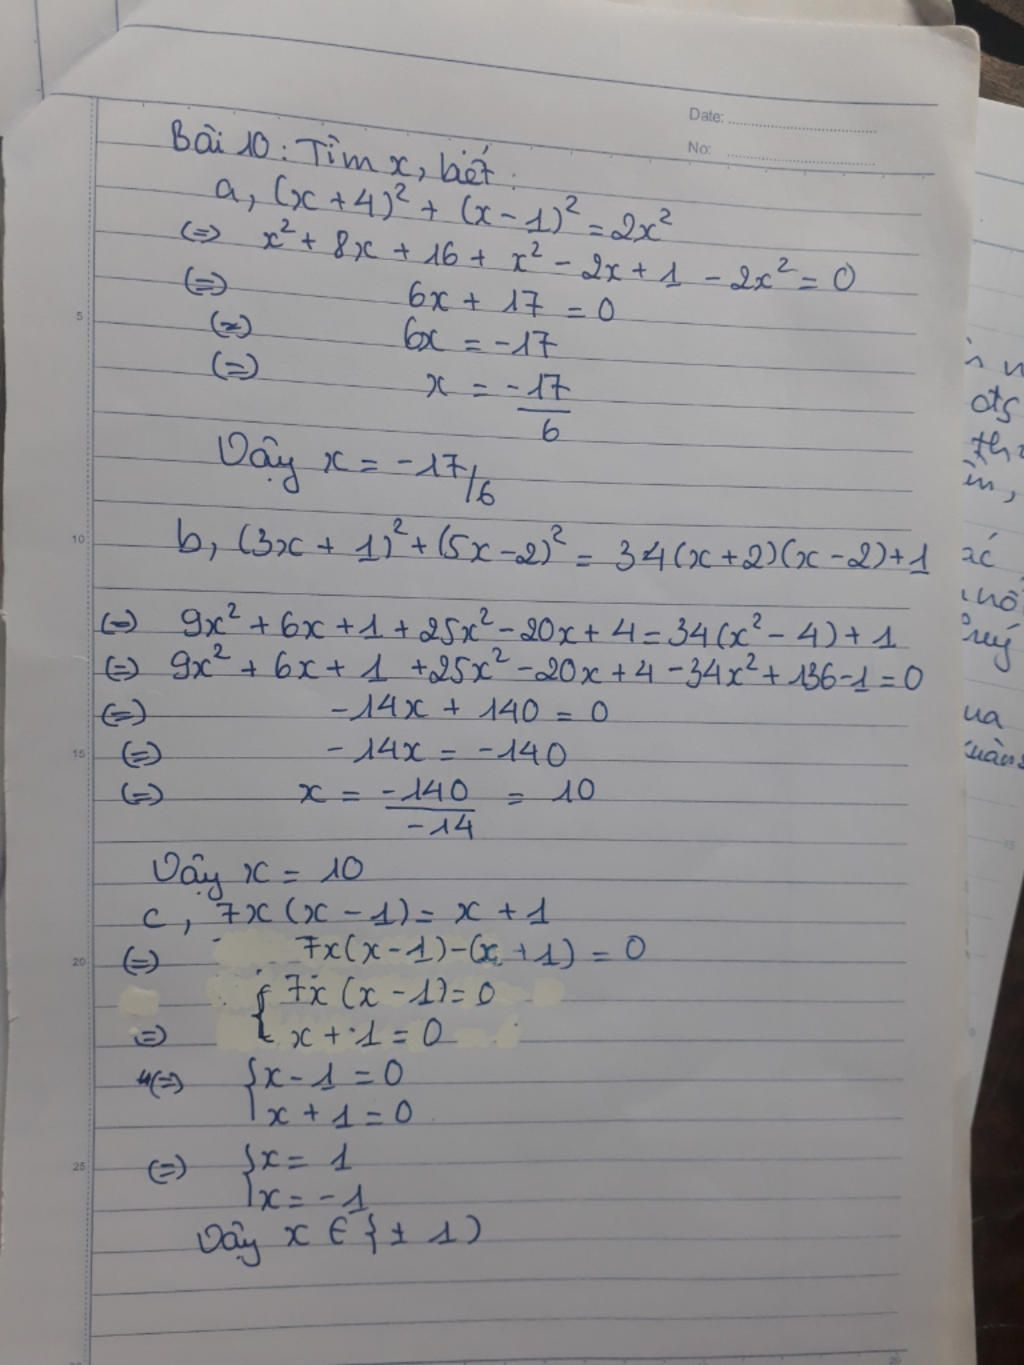 Date:
No:
Bài 10: Tìm x, biết:
a, (x + 4)² + (x - 1)² = 2x²
(=) x² + 8x + 16 + x² - 2x + 1 - 2x² = 0
(=) 6x + 17 = 0
(=) 6x = -17
(=) x = -17/6
Vậy x = -17/6
b, (3x + 1)² + (5x - 2)² = 34(x + 2)(x - 2) + 1
(=) 9x² + 6x + 1 + 25x² - 20x + 4 = 34(x² - 4) + 1
(=) 9x² + 6x + 1 + 25x² - 20x + 4 - 34x² + 136 - 1 = 0
(=) -14x + 140 = 0
(=) -14x = -140
(=) x = -140/-14 = 10
Vậy x = 10
c, 7x(x - 1) = x + 1
(=) 7x(x - 1) - (x + 1) = 0
{ 7x(x - 1) = 0
=) x + 1 = 0
(=) { x - 1 = 0
x + 1 = 0
(=) { x = 1
x = -1
Vậy x ∈ {± 1)
5
10
15
20
25